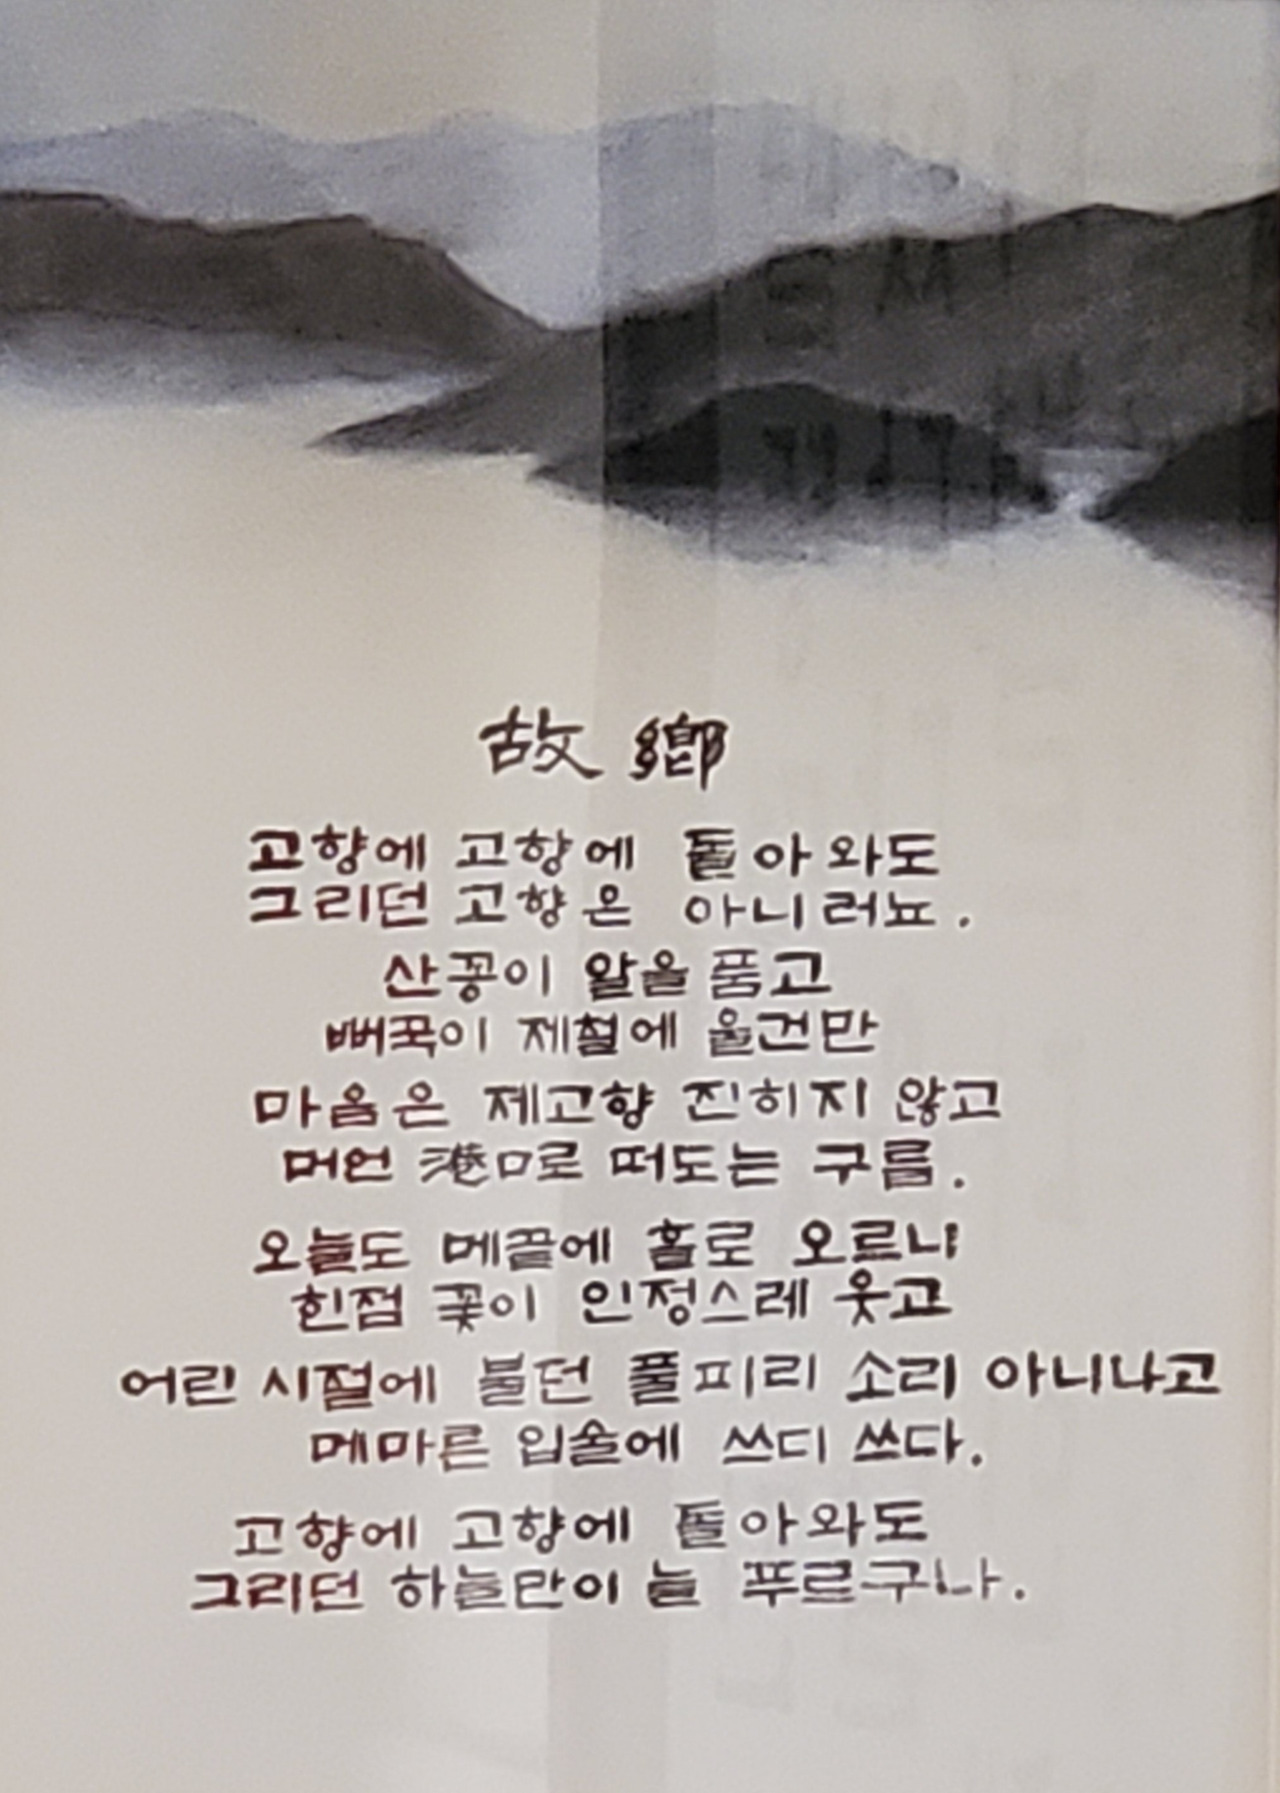 故鄕
고향에 고향에 돌아와도
그리던 고향은 아니러뇨.
산꽁이 알을 품고
뻐꾹이 제철에 울건만
마음은 제고향 진히지 않고
머언 港口로 떠도는 구름.
오늘도 메끝에 홀로 오르니
힌점 꽃이 인정스레 웃고
어린 시절에 불던 풀피리 소리 아니나고
메마른 입술에 쓰디 쓰다.
고향에 고향에 돌아와도
그리던 하늘만이 늘 푸르구나.